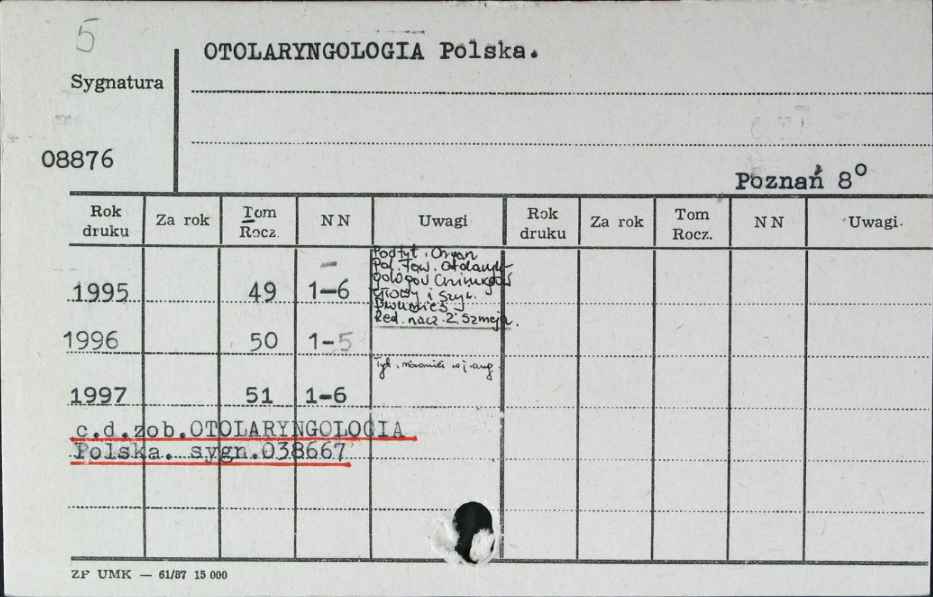 5
OTOLARYNGOLOGIA Polska.
Sygnatura
08876
Poznań 8°
Rok druku Za rok Tom Rocz. NN Uwagi Rok druku Za rok Tom Rocz. NN Uwagi
Podtyt. Organ
Pol. Tow. Otolaryn-
gologów Chirurgów
Głowy i Szyi.
Dwumies.
Red. nacz. Z. Szmeja.
1995 49 1-6
1996 50 1-5
Tyt. również w j. ang.
1997 51 1-6
c.d.zob.OTOLARYNGOLOGIA
Polska. sygn.038667
ZP UMK — 61/87 15 000